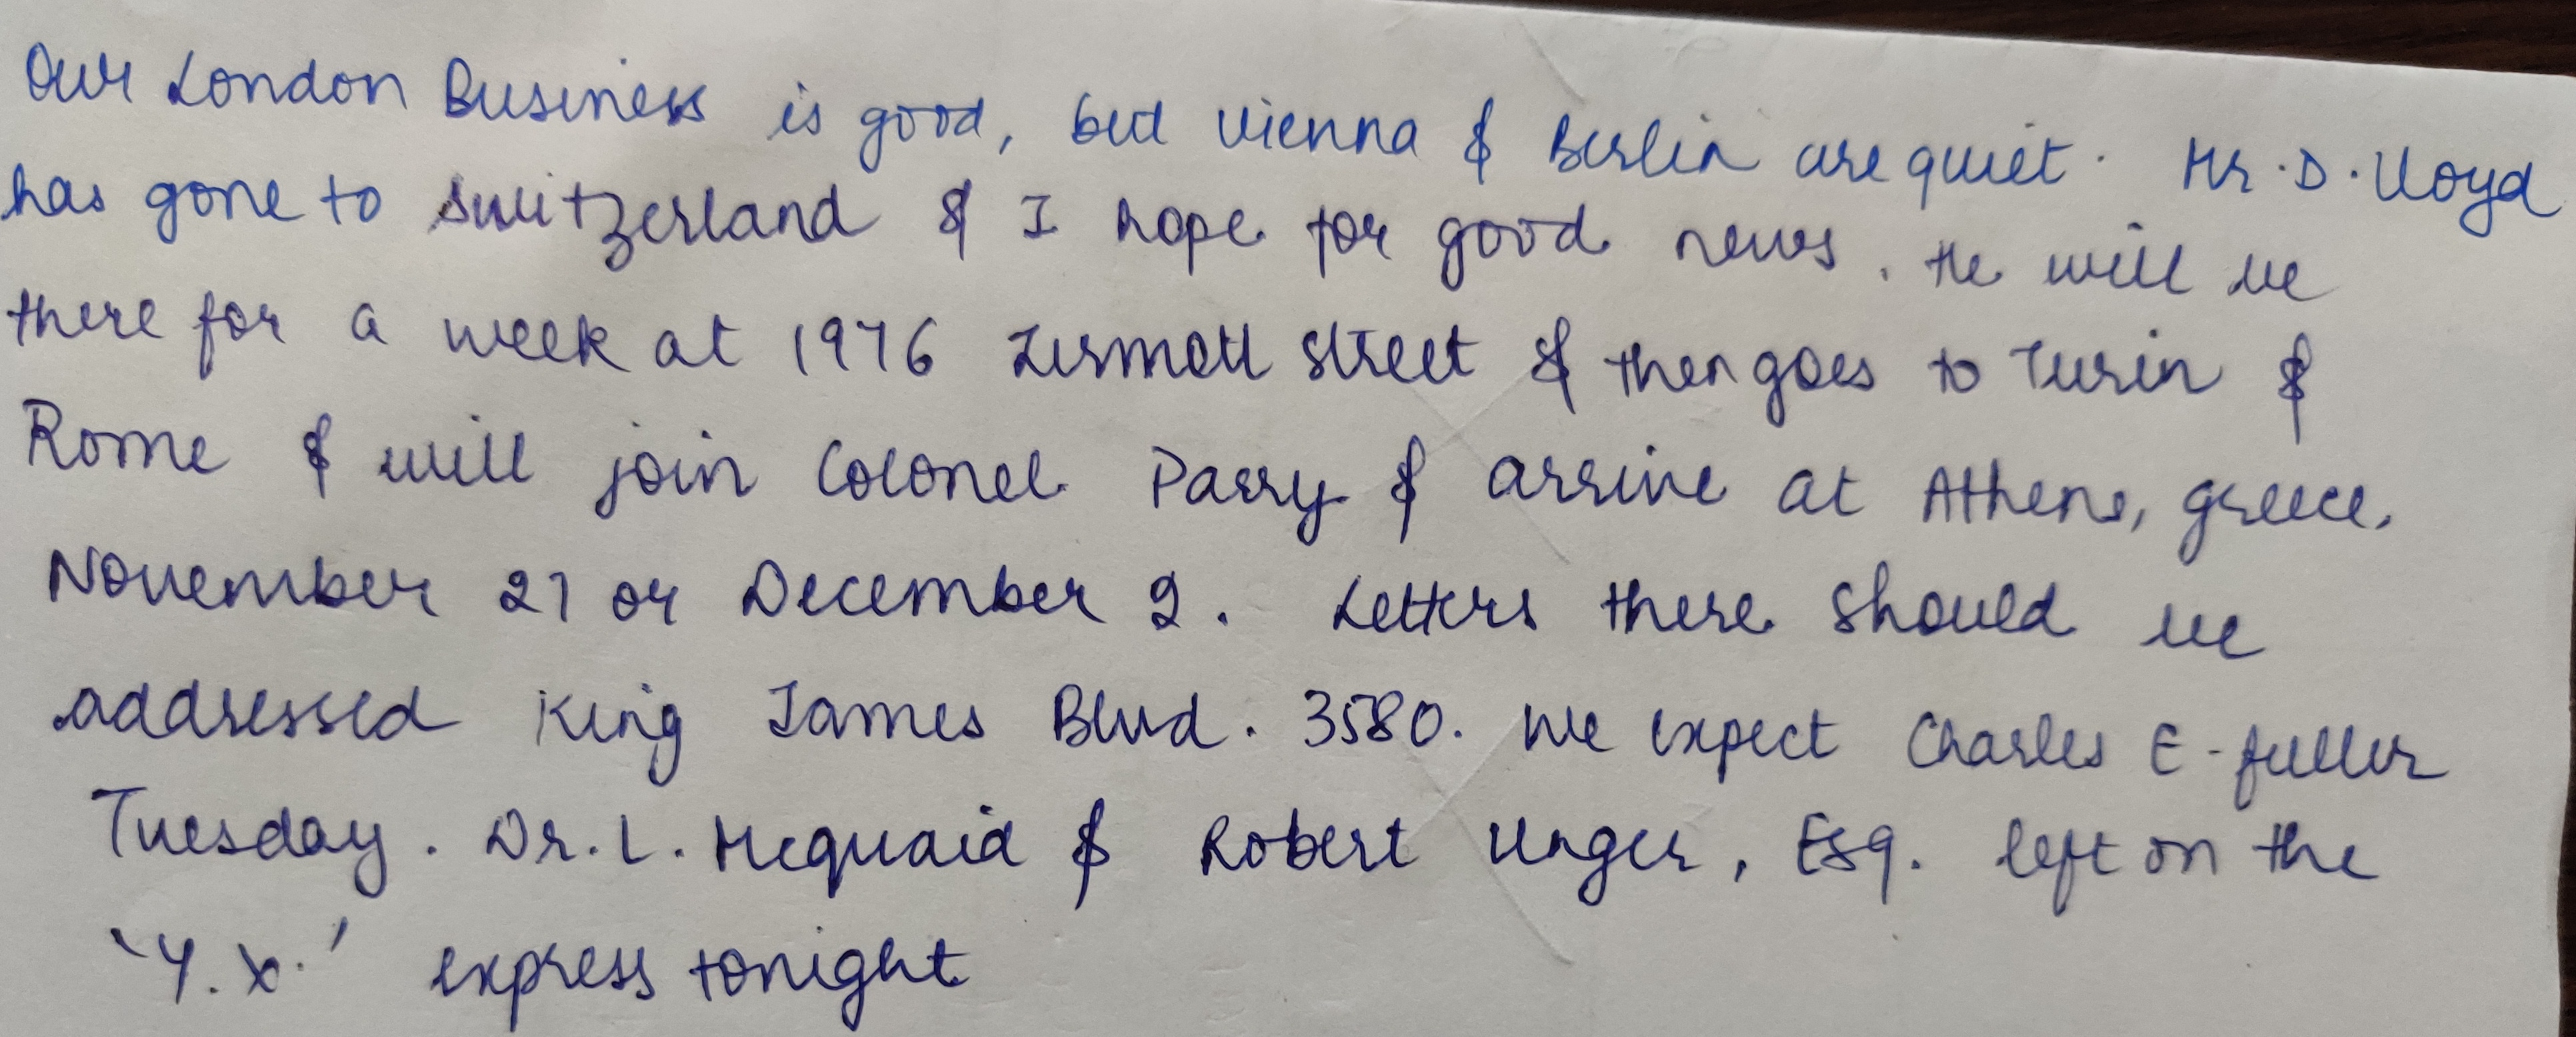 Our London Business is good, but Vienna & Berlin are quiet. Mr. D. Lloyd
has gone to Switzerland & I hope for good news. He will be
there for a week at 1976 Zermott Street & then goes to Turin &
Rome & will join Colonel Parry & arrive at Athens, Greece,
November 27 or December 2. Letters there should be
addressed King James Blvd. 3580. We expect Charles E. Fuller
Tuesday. Dr. L. McQuaid & Robert Unger, Esq. left on the
'Y.X.' express tonight